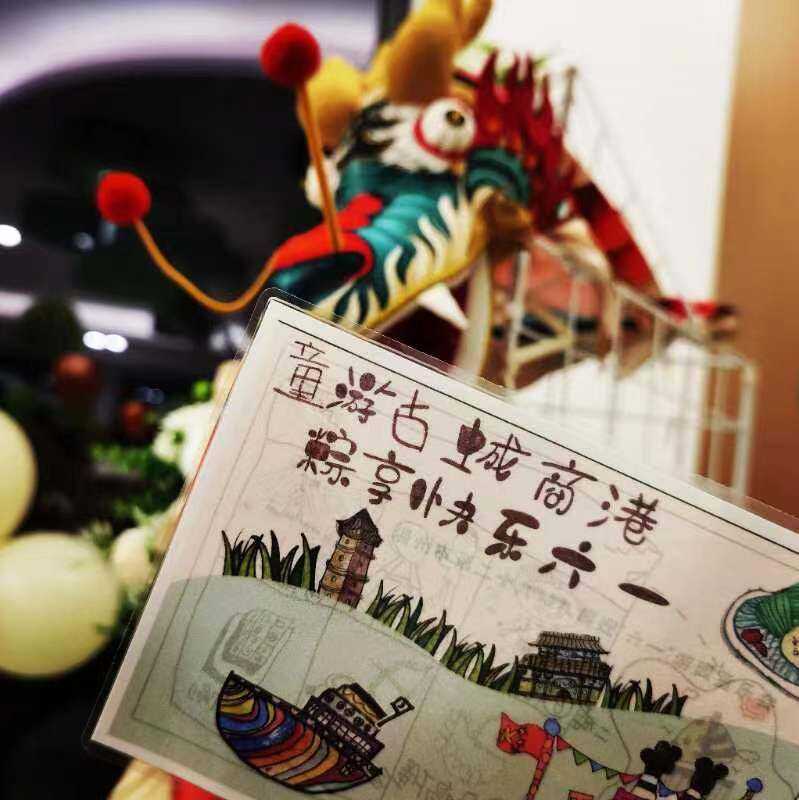 童游古城商港
粽享快乐六一